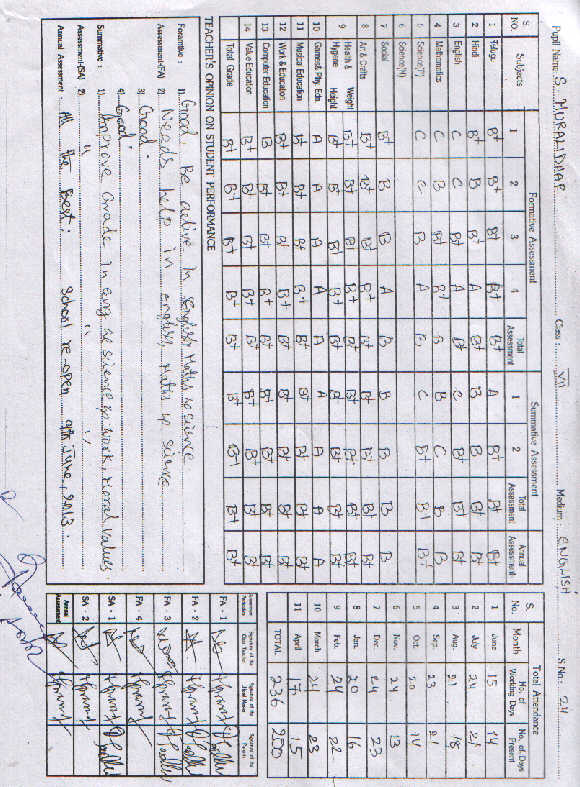 Pupil Name S. MURALIDHAR Class: VII Medium: ENGLISH S.No.: 24
S. NO. Subjects Formative Assessment Summative Assessment
1 2 3 4 Total Assessment 1 2 Total Assessment Annual Assessment
1 Telugu B+ B+ B+ B+ B+ A B+ B+ B+
2 Hindi B+ B B+ A B+ B B B+ B+
3 English C C B+ A B+ C B+ B+ B+
4 Mathematics C B B+ A B B C B B
5 Science(P) C C B A B C B+ B+ B+
6 Science(N)
7 Social B+ B B A B B B B B
8 Art & Crafts B+ B+ B+ B+ B+ B+ B+ B+ B+
9 Health & Hygiene Weight Height
10 Games & Phy. Edn. A A A A A A A A A
11 Medical Education B+ B+ B+ B+ B+ B+ B+ B+ B+
12 Work & Education B+ B+ B+ B+ B+ B+ B+ B+ B+
13 Computer Education B B+ B+ B+ B+ B+ B+ B+ B+
14 Value Education B+ B+ B+ B+ B+ B+ B+ B+ B+
Total Grade B+ B+ B+ B+ B+ B+ B+ B+ B+
TEACHER'S OPINION ON STUDENT PERFORMANCE
Formative : 1). Good. Be active in English, Maths & science
Assessment(FA) 2). Needs help in english, Maths & science
3). Good.
4). Good.
Summative : 1). Improve Grade in eng & science
Assessment(SA) 2). " " "
Annual Assessment : All the Best. School re-open June, 2013.
S. No. Month Total Attendance
No. of Working Days No. of Days Present
1 June 15 14
2 July 24 21
3 Aug. 21 18
4 Sep. 23 21
5 Oct. 20
6 Nov. 24 13
7 Dec. 24 23
8 Jan. 20 16
9 Feb. 24 22
10 March 24 23
11 April 17 15
TOTAL 236 200
Signature of the Class Teacher Signature of the Head Master Signature of the Parents
FA - 1
FA - 2
FA - 3
FA - 4
SA - 1
SA - 2
Annual Assessment